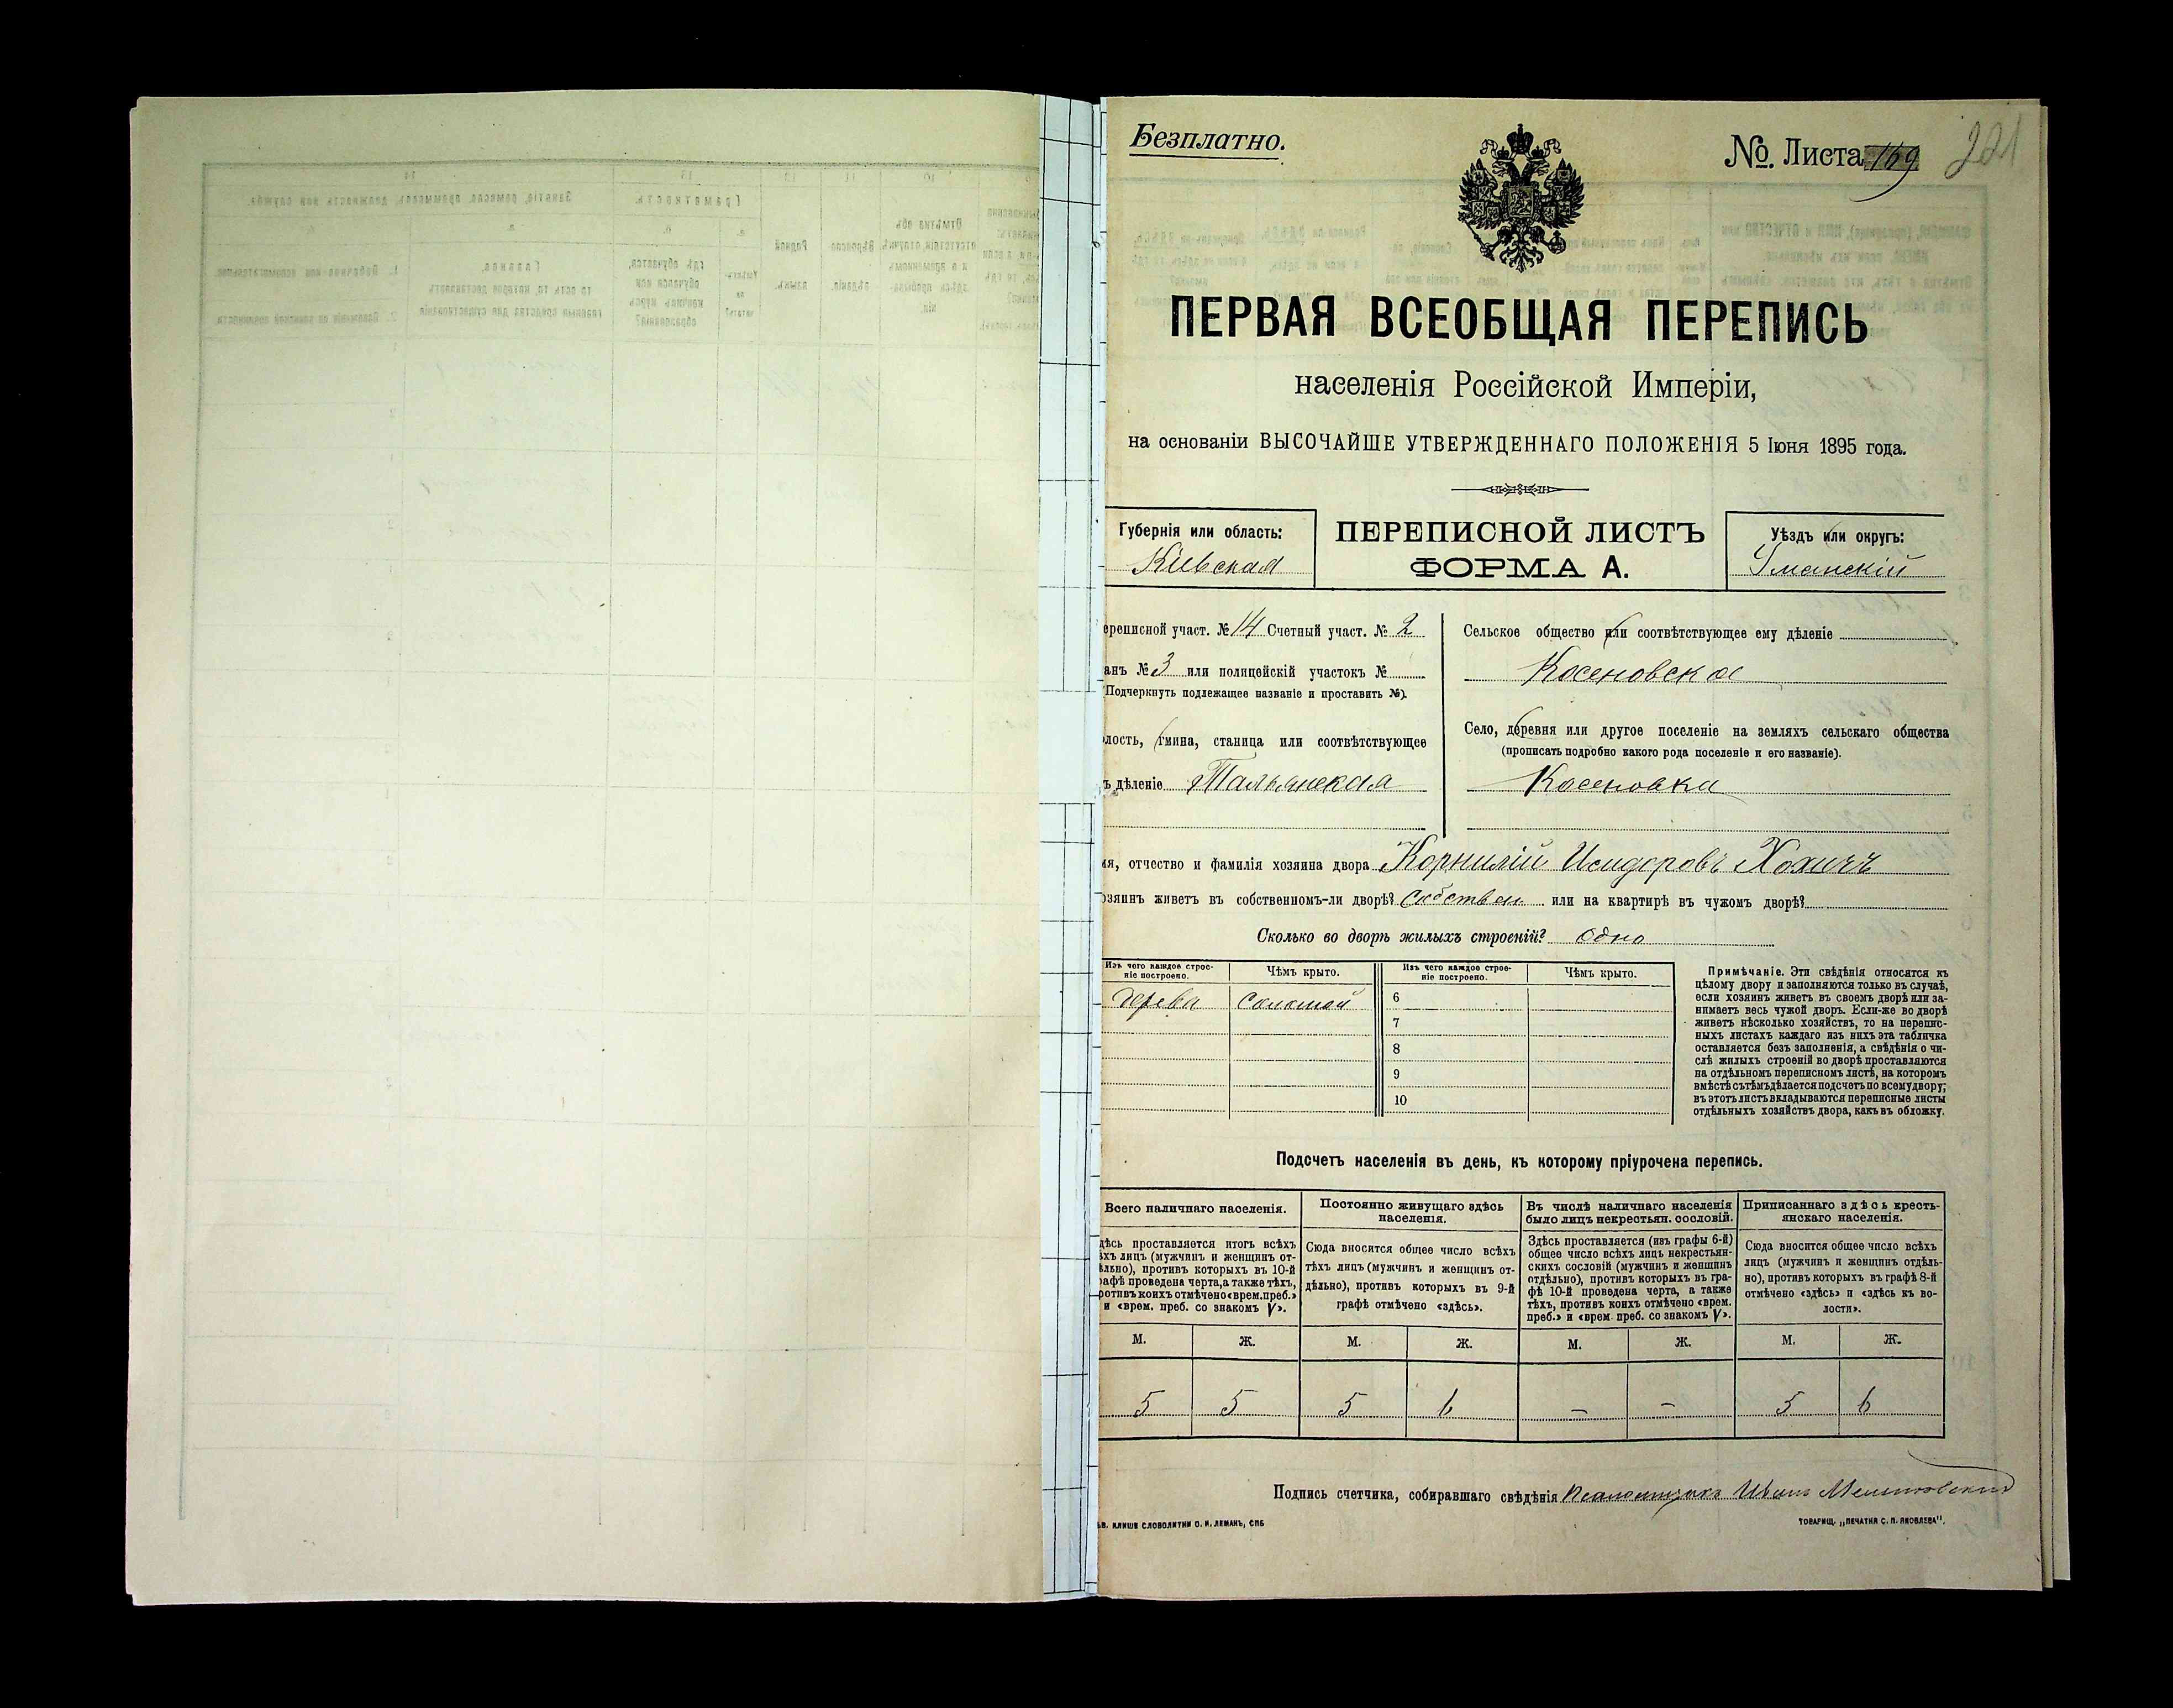 Безплатно.
№. Листа 169 221
ПЕРВАЯ ВСЕОБЩАЯ ПЕРЕПИСЬ
населенія Россійской Имперіи,
на основаніи ВЫСОЧАЙШЕ УТВЕРЖДЕННАГО ПОЛОЖЕНІЯ 5 Іюня 1895 года.
Губернія или область:
Кіевская
ПЕРЕПИСНОЙ ЛИСТЪ
ФОРМА А.
Уѣздъ или округъ:
Уманскій
ереписной участ. № 14 Счетный участ. № 2
анъ № 3 или полицейскій участокъ №
(Подчеркнуть подлежащее названіе и проставить №).
лость, гмина, станица или соотвѣтствующее
ъ дѣленіе Тальянская
Сельское общество или соотвѣтствующее ему дѣленіе
Косеновское
Село, деревня или другое поселеніе на земляхъ сельскаго общества
(прописать подробно какого рода поселеніе и его названіе).
Косеновка
ія, отчество и фамилія хозяина двора Корнилій Исидоровъ
озяинъ живетъ въ собственномъ-ли дворѣ? собствен или на квартирѣ въ чужомъ дворѣ?
Сколько во дворѣ жилыхъ строеній? одно
Изъ чего каждое строе-
ніе построено.
Чѣмъ крыто.
Изъ чего каждое строе-
ніе построено.
Чѣмъ крыто.
дерева соломой 6
7
8
9
10
Примѣчаніе. Эти свѣдѣнія относятся къ
цѣлому двору и заполняются только въ случаѣ,
если хозяинъ живетъ въ своемъ дворѣ или за-
нимаетъ весь чужой дворъ. Если-же во дворѣ
живетъ нѣсколько хозяйствъ, то на перепис-
ныхъ листахъ каждаго изъ нихъ эта табличка
оставляется безъ заполненія, а свѣдѣнія о чи-
слѣ жилыхъ строеній во дворѣ проставляются
на отдѣльномъ переписномъ листѣ, на которомъ
вмѣстѣ съ тѣмъ дѣлается подсчетъ по всему двору;
въ этотъ листъ вкладываются переписные листы
отдѣльныхъ хозяйствъ двора, какъ въ обложку.
Подсчетъ населенія въ день, къ которому пріурочена перепись.
Всего наличнаго населенія.
дѣсь проставляется итогъ всѣхъ
ѣхъ лицъ (мужчинъ и женщинъ от-
ѣльно), противъ которыхъ въ 10-й
рафѣ проведена черта, а также тѣхъ,
ротивъ коихъ отмѣчено «врем. преб.»
и «врем. преб. со знакомъ V».
Постоянно живущаго здѣсь
населенія.
Сюда вносится общее число всѣхъ
тѣхъ лицъ (мужчинъ и женщинъ от-
дѣльно), противъ которыхъ въ 9-й
графѣ отмѣчено «здѣсь».
Въ числѣ наличнаго населенія
было лицъ некрестьян. сословій.
Здѣсь проставляется (изъ графы 6-й)
общее число всѣхъ лицъ некрестьян-
скихъ сословій (мужчинъ и женщинъ
отдѣльно), противъ которыхъ въ гра-
фѣ 10-й проведена черта, а также
тѣхъ, противъ коихъ отмѣчено «врем.
преб.» и «врем. преб. со знакомъ V».
Приписаннаго здѣсь кресть-
янскаго населенія.
Сюда вносится общее число всѣхъ
лицъ (мужчинъ и женщинъ отдѣль-
но), противъ которыхъ въ графѣ 8-й
отмѣчено «здѣсь» и «здѣсь къ во-
лости».
М. Ж. М. Ж. М. Ж. М. Ж.
5 5 5 6 – – 5 6
Подпись счетчика, собиравшаго свѣдѣнія Псаломщикъ Иванъ
ыв. клише словолитни О. И. Леманъ, СПБ
Товарищ. „Печатня С. П. Яковлева".